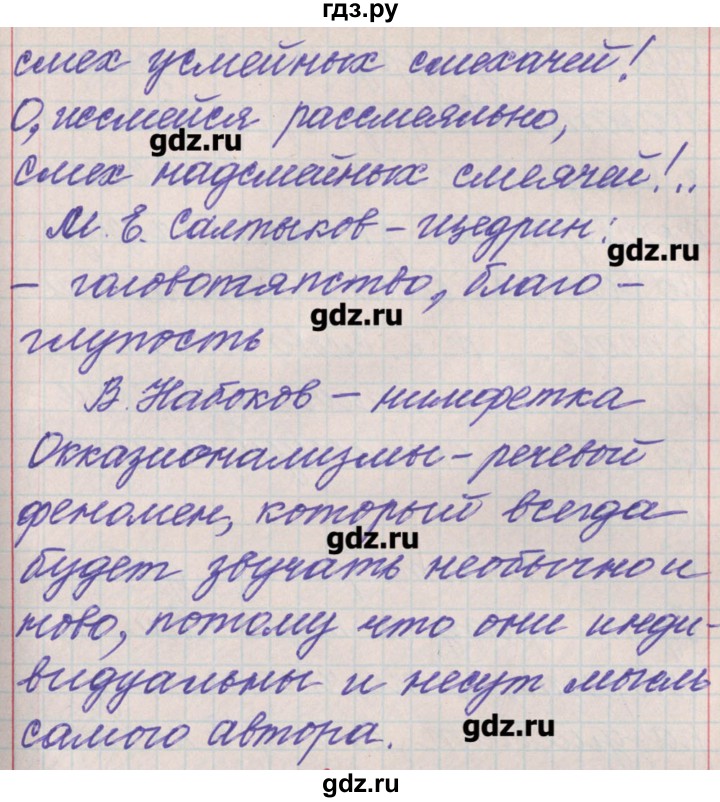 гдз.ру
смех усмейных смехачей!
О, иссмейся рассмеяльно,
gdz.ru
смех надсмейных смеячей!..
М. Е. Салтыков-Щедрин:
gdz.ru
- головотяпство, благо-
gdz.ru
глупость
В. Набоков - нимфетка
Окказионализмы - речевой
феномен, который всегда
gdz.ru
будет звучать необычно и
ново, потому что они инди-
видуальны и несут мысль
самого автора.
gdz.ru
gdz.ru